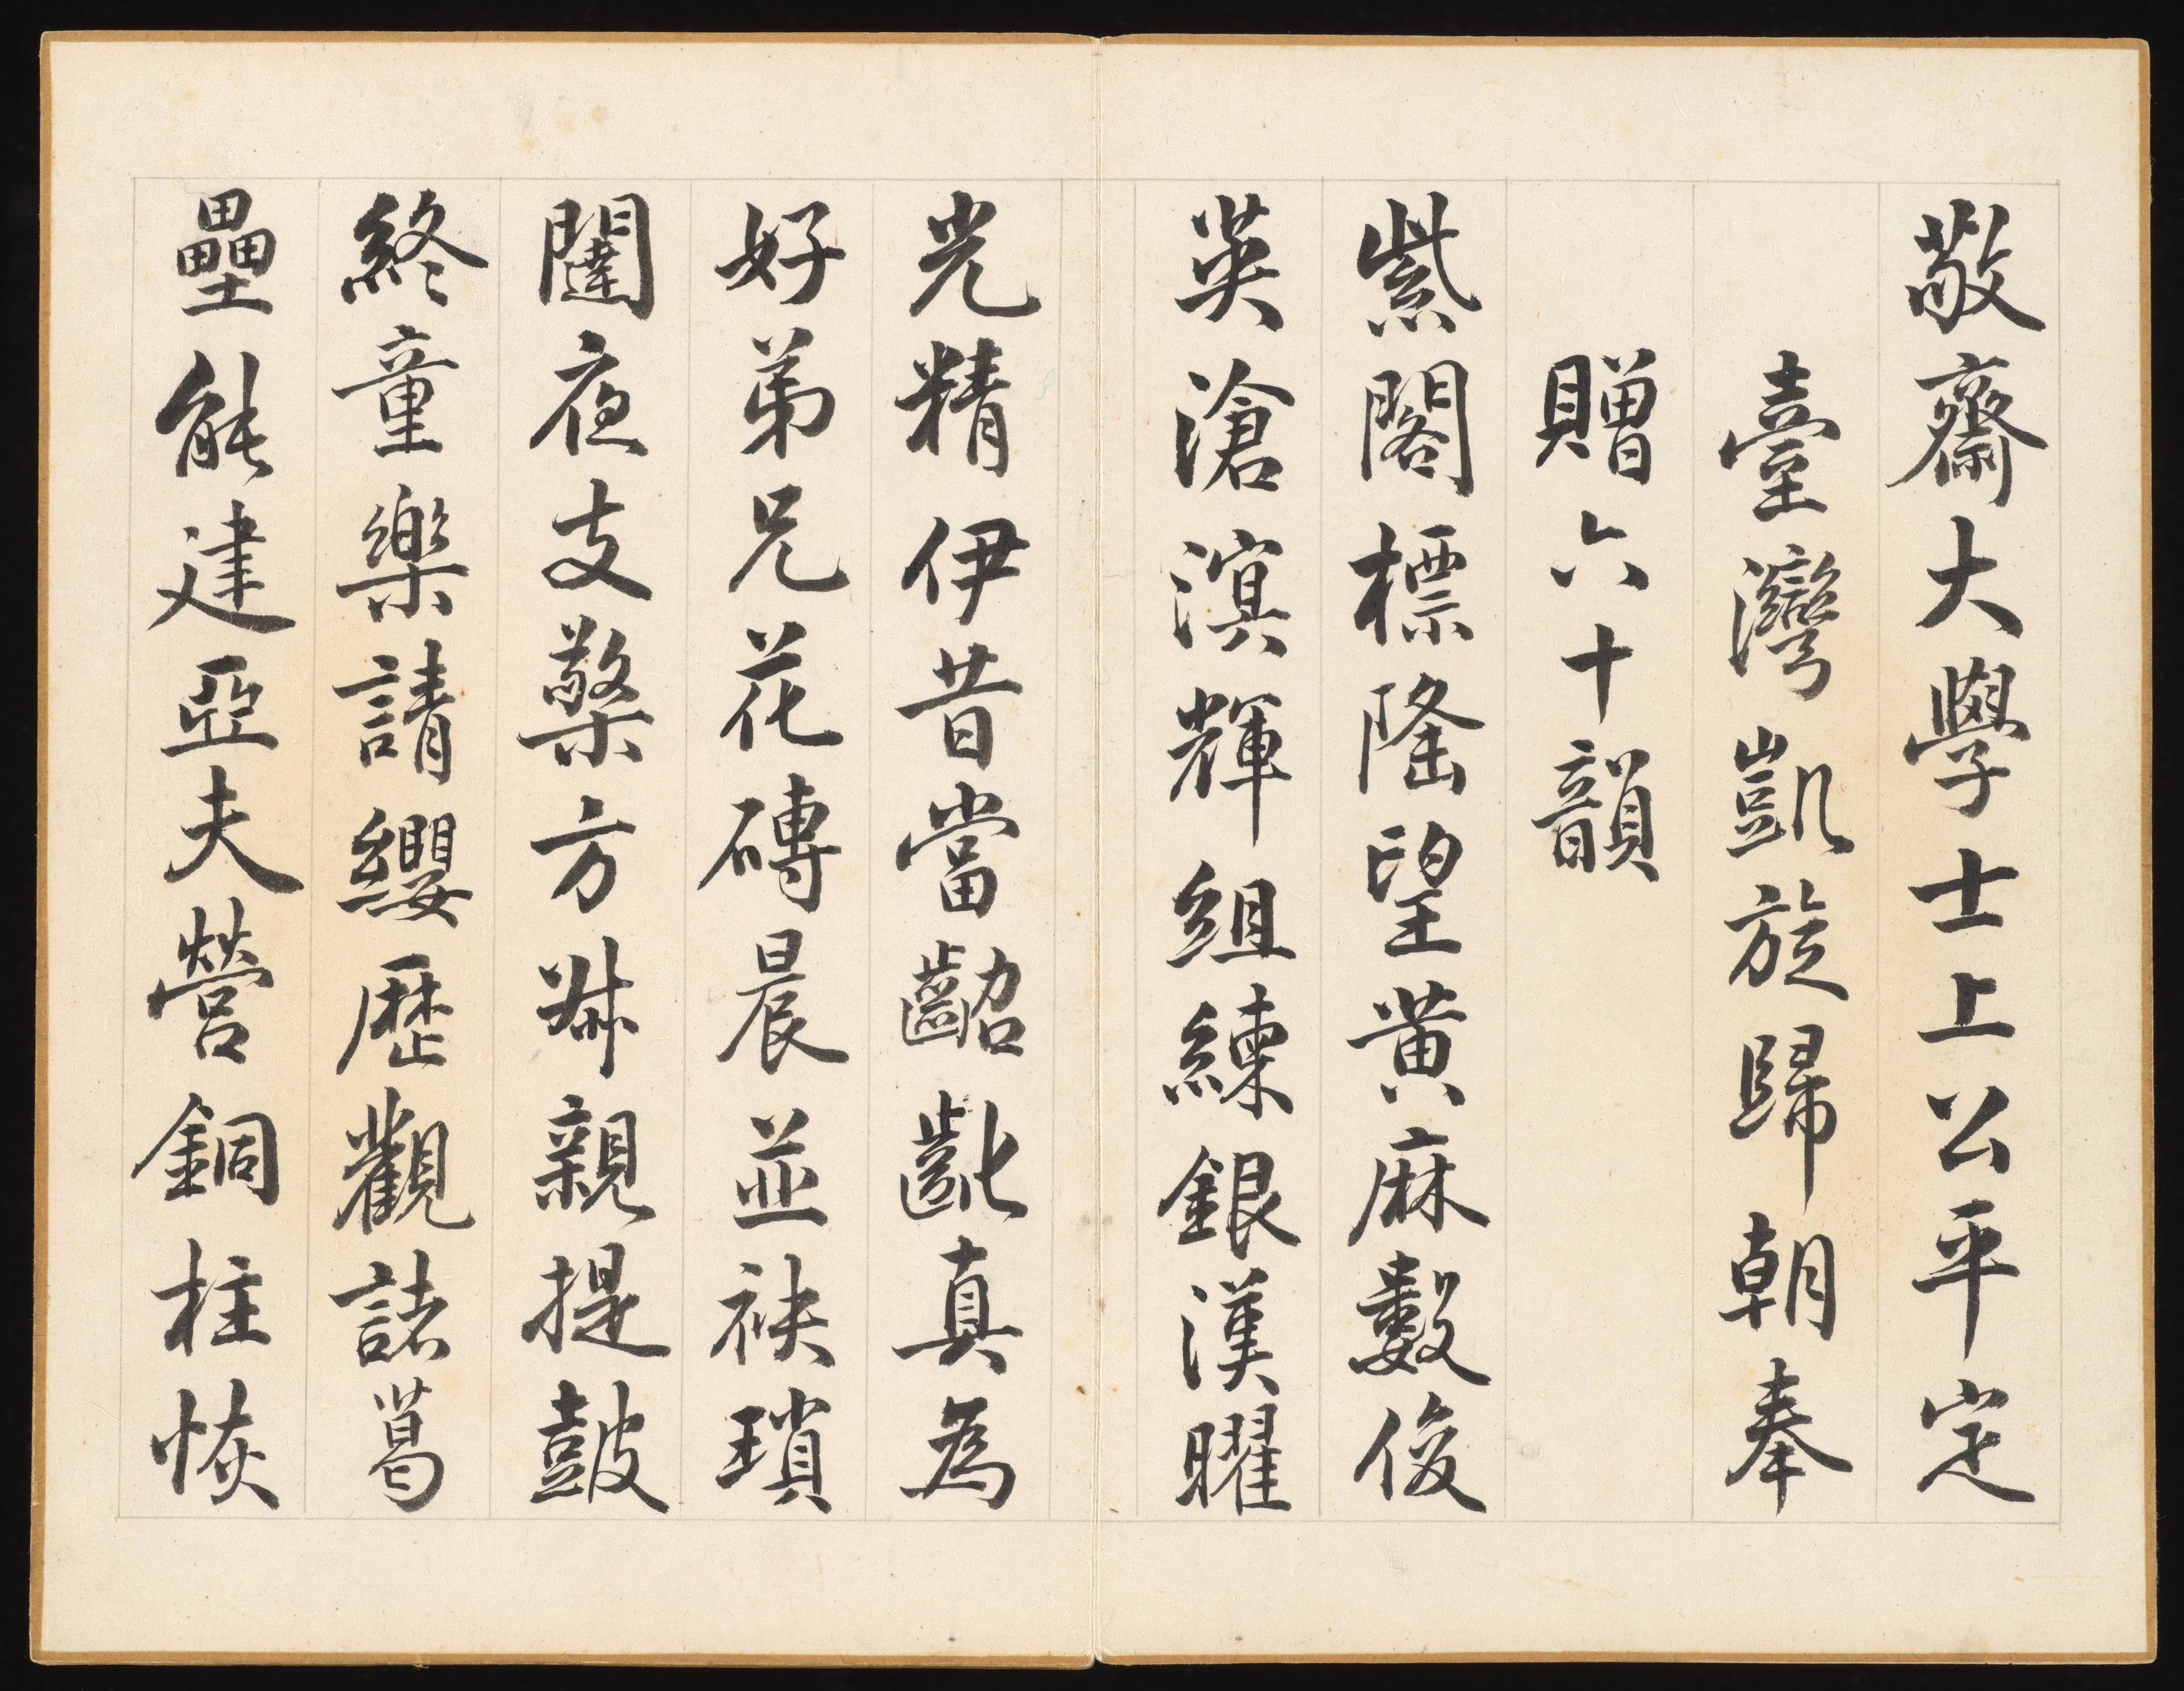 敬齋大學士上公平定
臺灣凱旋歸朝奉
贈六十韻
紫閣標隆望黃麻數俊
英滄溟輝組練銀漢曜
光精伊昔當齠齔真為
好弟兄花磚晨並袂瑣
闥夜支檠方舛親提鼓
終童樂請纓歷觀諸葛
壘能建亞夫營銅柱恢